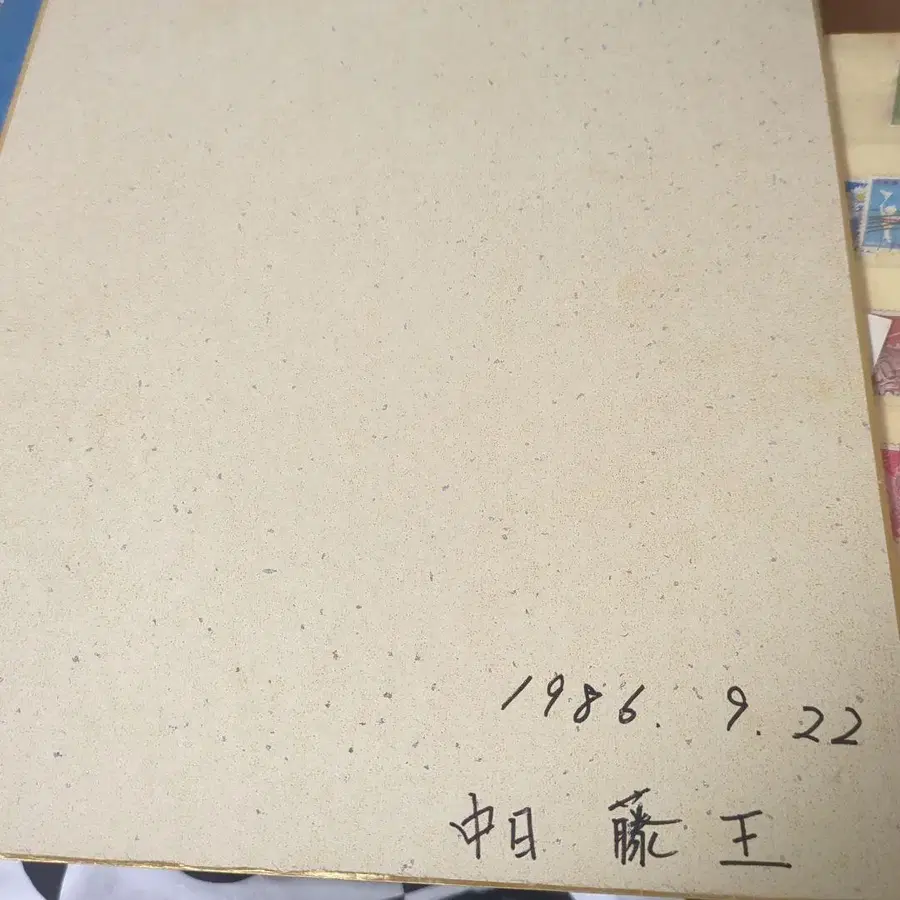 1986. 9. 22
中日 藤王